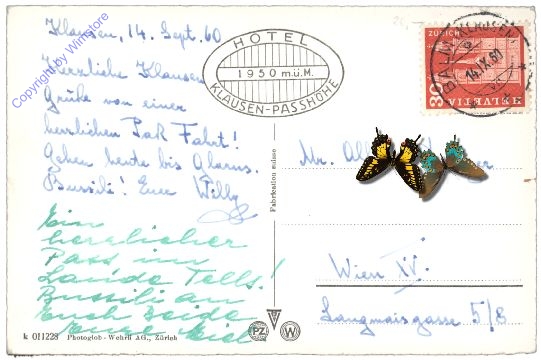 Klausen, 14. Sept. 60
Herzliche Klausen
Grüße von einer
herrlichen Paß Fahrt!
Gehen heute bis Glarus.
Bussili! Euer Willy
Ein
herzlicher
Pass im
Lande Tells!
Bussili an
Euch beide
Eure
k 011228 Photoglob-Wehrli AG., Zürich
HOTEL
1950 m.ü.M.
KLAUSEN-PASSHÖHE
Fabrication suisse
PZ W
ZÜRICH
HELVETIA
14.IX.60
Wien XV.
Langmaisgasse 5/8
Copyright by Winstore